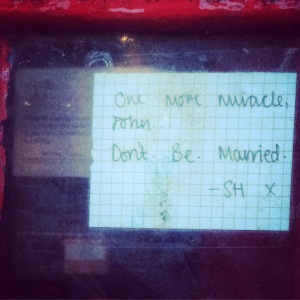 One more miracle,
John...
Don't. Be. Married.
-SH X